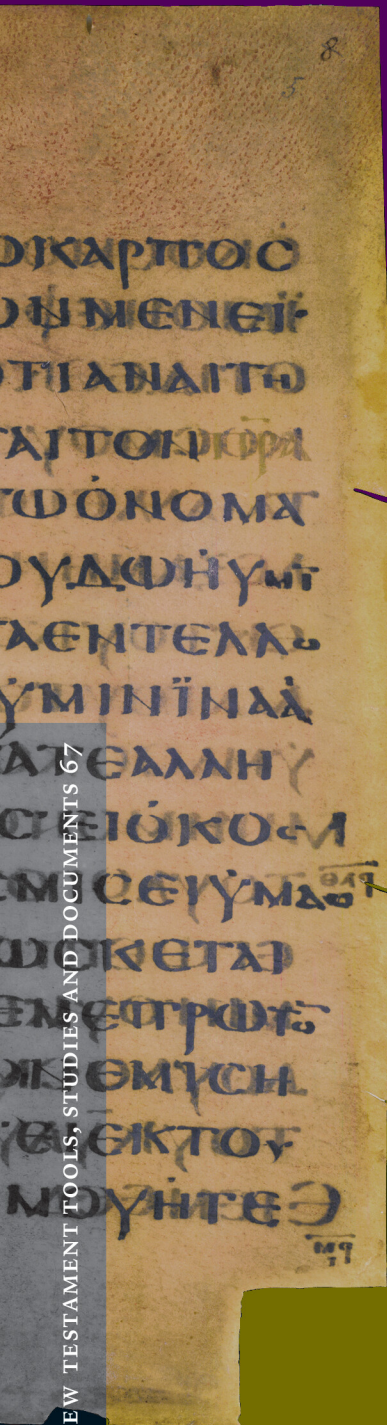 8
5
ΟΚΑΡΠΟC
ΜΕΝΕΙ·
ΟΤΙΑΝΑΙΤΗ
ΤΑΙΤΟΝ
ΤΩΟΝΟΜΑ
ΟΥΔΩΗΥΜΙ
ΤΑΕΝΤΕΛΛΟ
ΥΜΙΝΪΝΑΑ
ΑΤΕΑΛΛΗ
CΕΙΟΚΟC
ΜΙCΕΙΥΜΑC
ΩCΚΕΤΑΙ
ΕΜΕΠΡΩΤΟ
ΕΜΙCΗ
ΕΙΕΚΤΟΥ
ΜΟΥΗΤΕ
EW TESTAMENT TOOLS, STUDIES AND DOCUMENTS 67